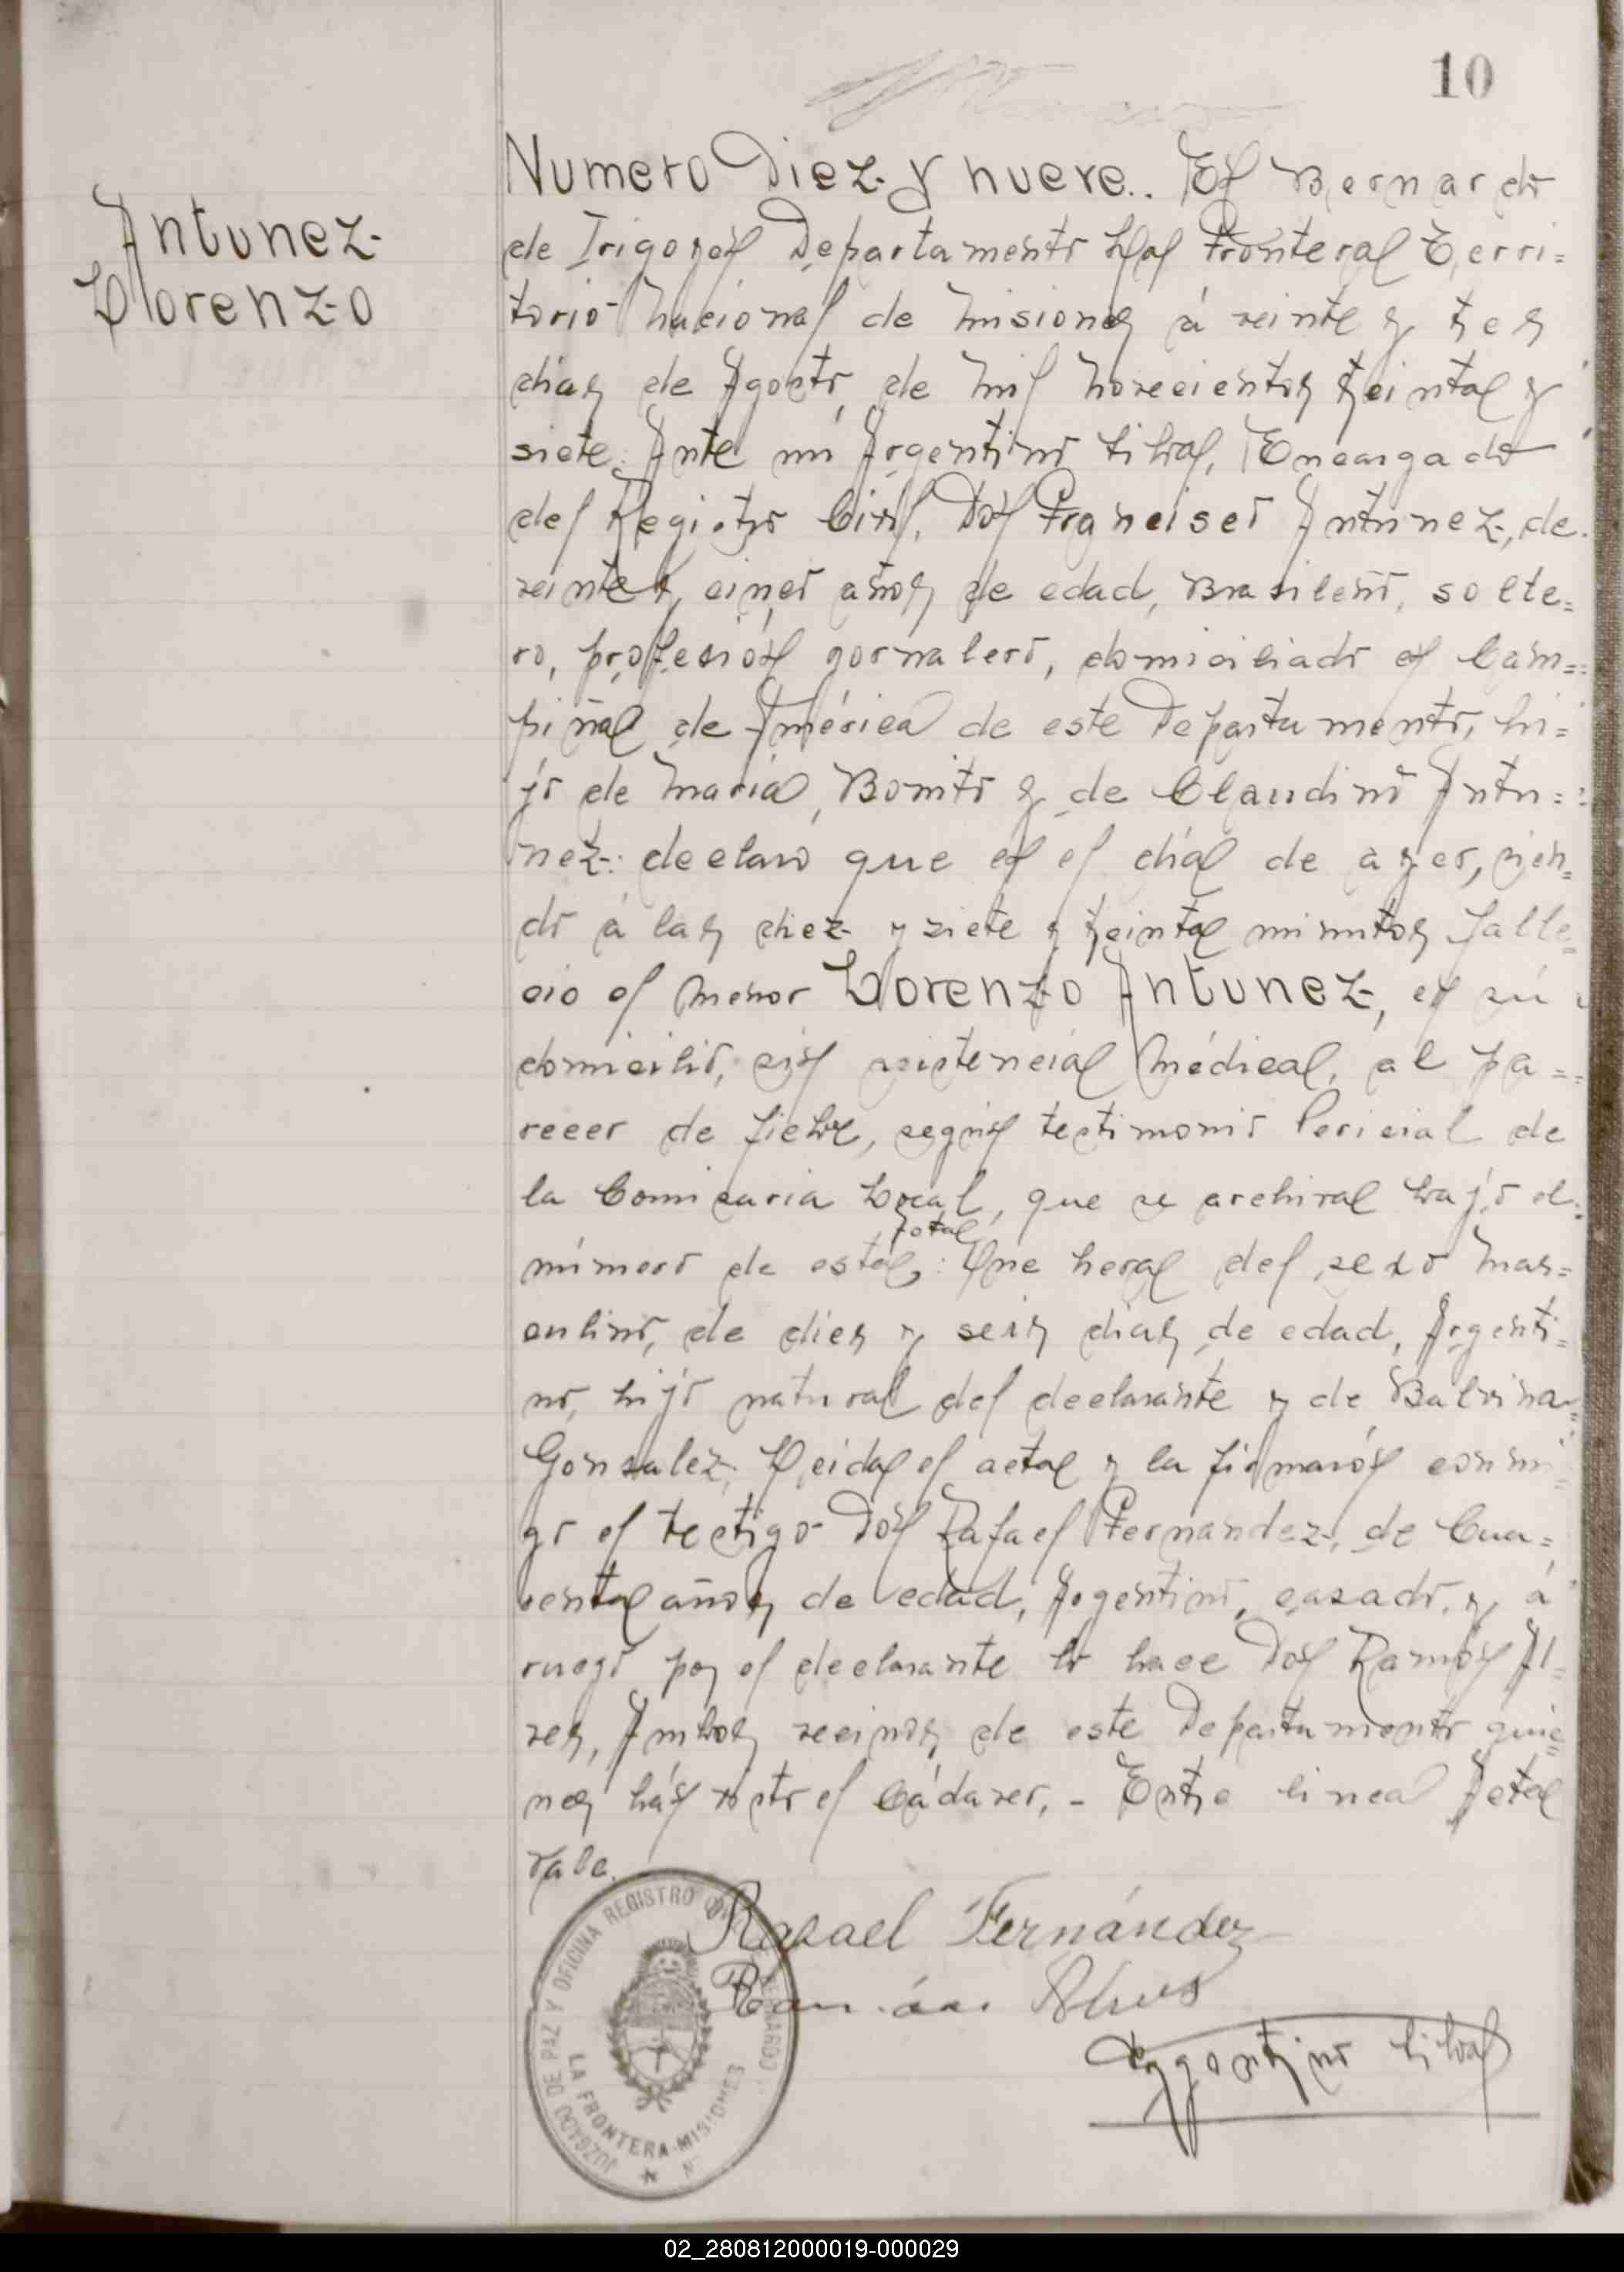 10
Antunez
Lorenzo
Numero Diez y nueve.. En Bernardo
de Irigoyen Departamento La Frontera Terri=
torio Nacional de Misiones á veinte y tres
dias de Agosto de mil novecientos treinta y
siete. Ante mi Argentino Silva, Encargado
del Registro Civil, Don Francisco Antunez, de
veinte y cinco años de edad, Brasileño, solte=
ro, profesión jornalero, domiciliado en Cam=
piña de América de este Departamento, hi=
jo de María Bonito y de Claudino Antu=
nez: declaró que en el día de ayer, sien=
do á las diez y siete y treinta minutos falle=
cio el menor Lorenzo Antunez, en sú
domicilio, sin asistencia Médica, al pa=
recer de fiebre, según testimonio Pericial de
la Comisaria Local, que se archiva bajo el
fotal
número de esta,: Que hera del sexo mas=
culino, de dies y seis dias de edad, Argenti=
no, hijo natural del declarante y de Balvina
Gonsalez; Leida el acta y la firmarón conmi
go el testigo Don Rafael Fernandez, de Cua=
renta años de edad, Argentino, casado, y á
ruego por el declarante lo hace Don Ramón Al=
ves, Ambos vecinos de este Departamento quie=
nes hán visto el Cádaver, - Entre linea fetal
Vale.
Rafael Fernández
Ramón Alves
Argentino Silva
JUZGADO DE PAZ Y OFICINA REGISTRO
BERNARDO
LA FRONTERA-MISIONES
02_280812000019-000029